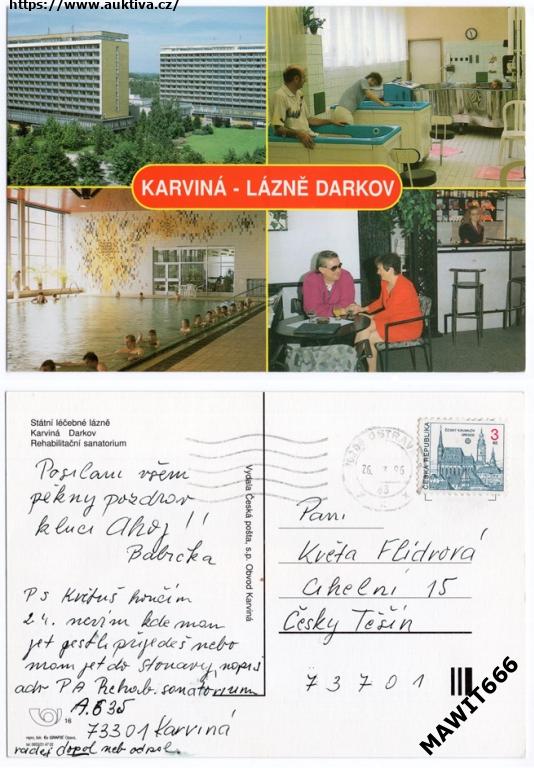 https://www.auktiva.cz/
KARVINÁ - LÁZNĚ DARKOV
Státní léčebné lázně
Karviná Darkov
Rehabilitační sanatorium
Posílam všem
pěkny pozdrav
kluci Ahoj !!
Babička
Ps Květuš končím
24. nevím kde mam
jet jestli přijedeš nebo
mam jet do Stonavy, napiš
adr PA Rehab. sanatorium
A. 635
73301 Karviná
raděj dopol neb odpol.
16
Vydala Česká pošta, s.p. Obvod Karviná
OSTRAVA
ČESKÝ KRUMLOV
UNESCO
3
Kč
ČESKÁ REPUBLIKA
Pani
Květa Flidrová
Cihelní 15
Česky Těšín
73701
MAWIT666